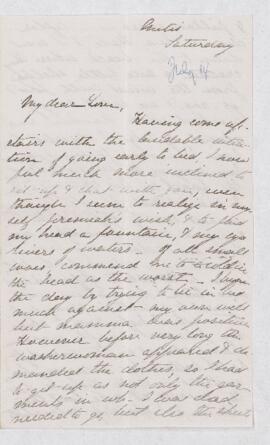 Saturday
My dear
Having come up
stairs with the laudable inten
tion of going early to bed, I now
feel much more inclined to
sit up & chat with you, even
though I seem to realize in my
self Jeremiah's wish, & to find
my head a fountain, & my eyes
rivers of waters. Of all small
woes commend me to a cold in
the head as the worst. I began
the day by trying to lie in bed
much against my own will
but mamma was positive
However before very long the
washerwoman appeared & de
manded the clothes, so I had
to get up as not only the gar
ments in wh. I was clad,
needed to go, but also the sheets